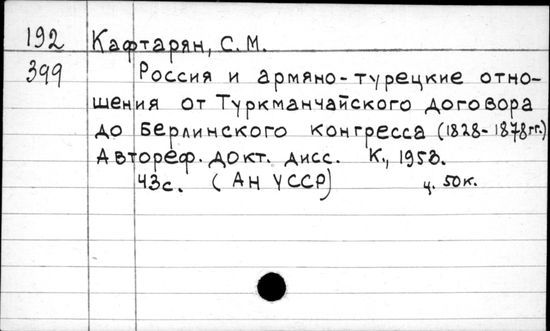 192 Кафтарян, С.М.
399 Россия и армяно-турецкие отно-
шения от Туркманчайского договора
до Берлинского конгресса (1828-1878гг.)
Автореф. докт. дисс. К., 1958.
43с. (АН УССР) ц. 50к.